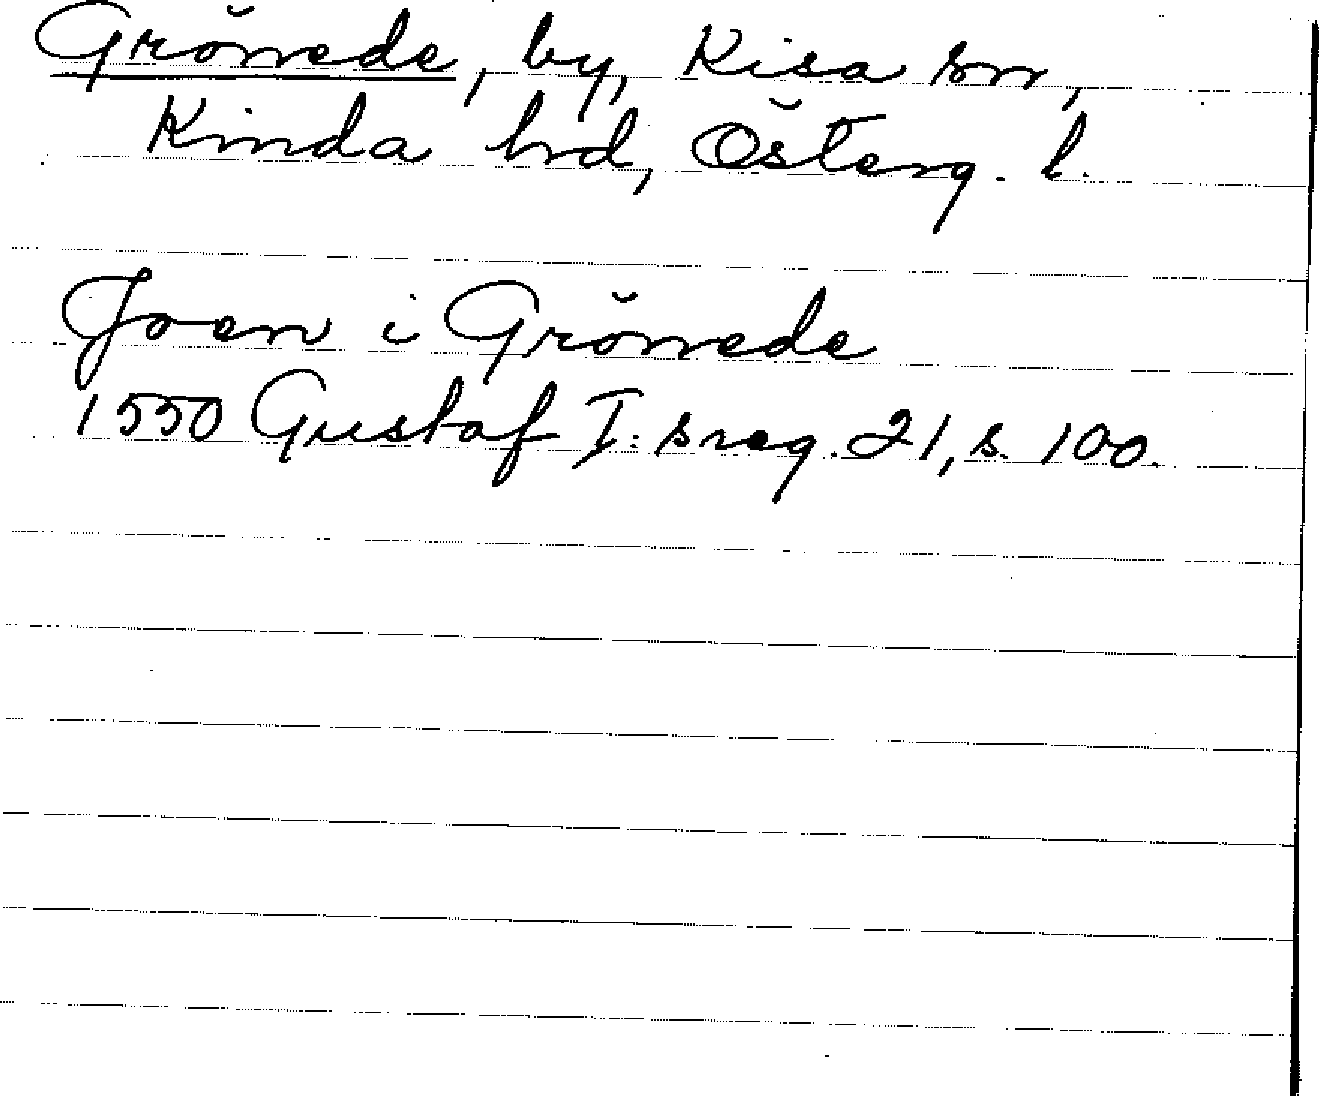 Grövede, by, Kisa sn,
Kinda hrd, Österg. l.
Joen i Grövede
1550 Gustaf I: s reg. 21, s. 100.